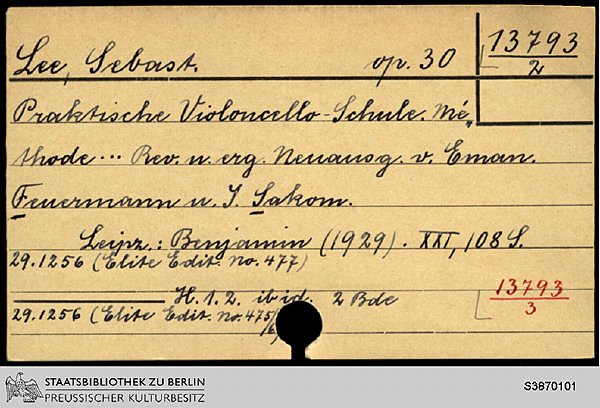 Lee, Sebast. op. 30 13793/2
Praktische Violoncello-Schule. Mé-
thode ... Rev. u. erg. Neuausg. v. Eman.
Feuermann u. J. Sakom.
Leipz.: Benjamin (1929). XXI, 108 S.
29.1256 (Elite Edit. No. 477)
H. 1. 2. ibid. 2 Bde 13793/3
29.1256 (Elite Edit. No. 475/6)
STAATSBIBLIOTHEK ZU BERLIN
PREUSSISCHER KULTURBESITZ
S3870101